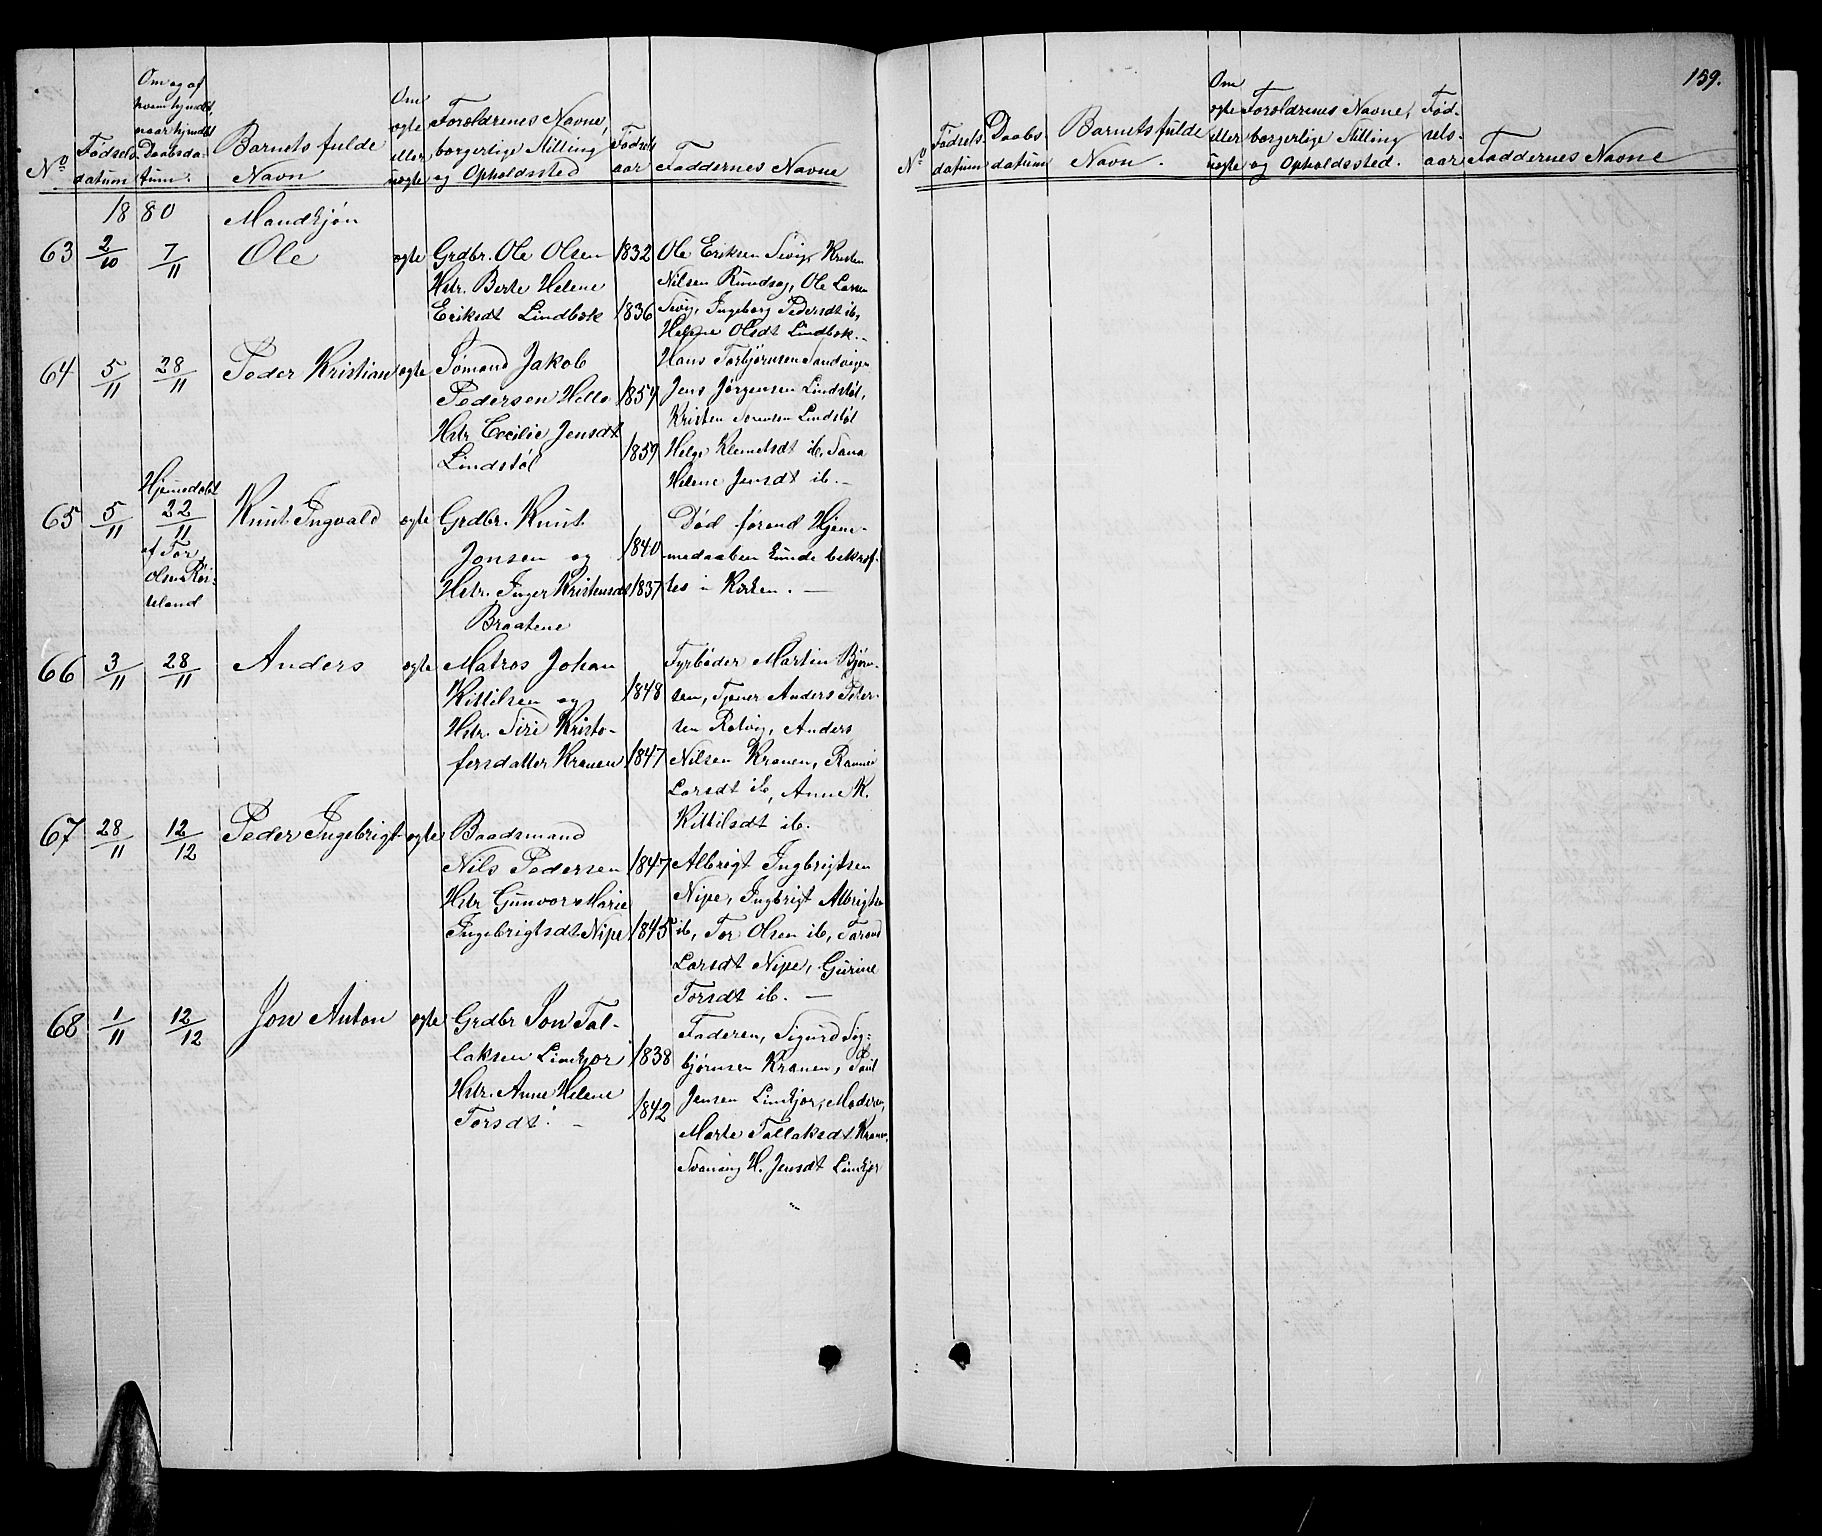 No
Fødsels-
datum
Om og af
hvem hjmdbt,
naar hjmdbt
Daabsda-
tum.
Barnets fulde
Navn
Om
ægte
eller
uægte
Forældrenes Navne,
borgerlige Stilling
og Opholdssted
Fødsels
aar
Faddernes Navne
1880
Mandkjøn
63
2/10
7/11
Ole
ægte
Grdbr. Ole Olsen
Hstr. Berte Helene
Eriksdt Lindbæk
1832
1836
Ole Eriksen Sevig, Kristen
Nilsen Rundsag, Ole Larsen
Sevig, Ingeborg Pedersdt ib,
Helene Olsdt Lindbæk.
64
5/11
28/11
Peder Kristian
ægte
Sømand Jakob
Pedersen Helle
Hstr. Cecilie Jensdt
Lindstøl
1854
1859
Hans Torbjørnsen Sandvigen
Jens Jørgensen Lindstøl,
Kristen Sørensen Lindstøl
Helge Klemetsdt ib, Tana
Helene Jensdt ib. —
65
5/11
Hjemdøbt
22/11
af Tor
Olsen Røi-
seland
Knut Ingvald
ægte
Grdbr. Knut
Jonsen og
Hstr. Inger Kristensdt
Braatene
1840
1837
Død førend Hjem-
medaaben kunde bekræf-
tes i Kirken. —
66
3/11
28/11
Anders
ægte
Matros Johan
Kittilsen og
Hstr. Siri Kristo-
fersdatter Kranen
1848
1847
Fyrbøder Martin Bjørn-
sen, Tjener Anders Peter-
sen Retvig, Anders
Nilsen Kranen,
Larsdt ib, Anne K.
Kittilsdt ib.
67
28/11
12/12
Peder Ingebrigt
ægte
Baadsmand
Nils Pedersen
Hstr Gunvor Marie
Ingebrigtsdt. Nipe
1847
1845
Albregt Ingbrigtsen
Nipe, Ingbrigt Albrigtsen
ib, Tor Olsen ib, Tarand
Larsdt Nipe, Gurine
Torsdt ib. —
68
1/11
12/12
Jon Anton
ægte
Grdbr Jon Tal-
laksen Limkjær
Hstr. Anne Helene
Torsdt. —
1838
1842
Faderen, Sigurd Sig-
bjørnsen Kranen, Poul
Jensen Limkjær, Moderen,
Marte Tallaksdt Kranen,
H. Jensdt Limkjær
159.
No
Fødsels-
datum
Daabs
datum
Barnets fulde
Navn.
Om
ægte
eller
uægte
Forældrenes Navne,
borgerlige Stilling
og Opholdssted.
Fød-
sels-
aar
Faddernes Navne